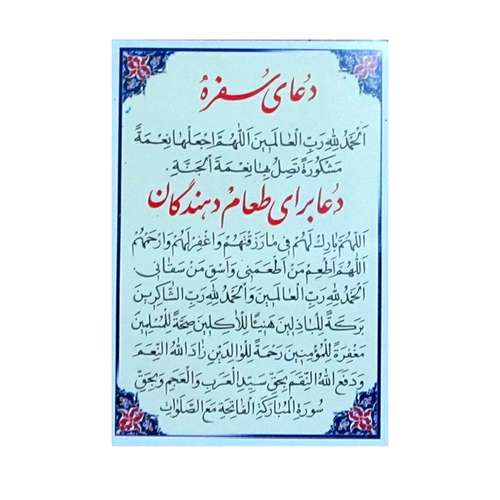 دعای سفره
اَلْحَمْدُ لِلّٰهِ رَبِّ الْعَالَمِینَ اَللّٰهُمَّ اجْعَلْهَا نِعْمَةً
مَشْکُورَةً تَصِلُ بِهَا نِعْمَةَ الْجَنَّةِ.
دعا برای طعام دهندگان
اَللّٰهُمَّ بَارِكْ لَهُمْ فِی مَا رَزَقْتَهُمْ وَاغْفِرْ لَهُمْ وَارْحَمْهُمْ
اَللّٰهُمَّ اَطْعِمْ مَنْ اَطْعَمَنِی وَاَسْقِ مَنْ سَقَانِی
اَلْحَمْدُ لِلّٰهِ رَبِّ الْعَالَمِینَ وَالْحَمْدُ لِلّٰهِ رَبِّ الشَّاکِرِینَ
بَرَکَةً لِلْبَاذِلِینَ هَنِیئًا لِلْآکِلِینَ صِحَّةً لِلْمُسْلِمِینَ
مَغْفِرَةً لِلْمُؤْمِنِینَ رَحْمَةً لِلْوَالِدَیْنِ زَادَ اللّٰهُ النِّعَمَ
وَدَفَعَ اللّٰهُ النِّقَمَ بِحَقِّ سَیِّدِ الْعَرَبِ وَالْعَجَمِ وَبِحَقِّ
سُورَةِ الْمُبَارَکَةِ الْفَاتِحَةِ مَعَ الصَّلَوَاتِ